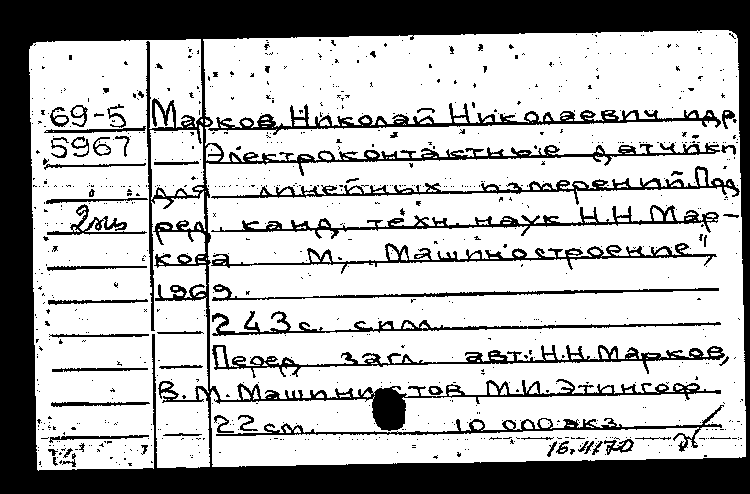 69-5 Марков, Николай Николаевич и др.
5967 Электроконтактные датчики
для линейных измерений. Под
2 экз ред. канд. техн. наук Н.Н. Мар-
кова. М., "Машиностроение",
1969.
243 с. с илл.
Перед загл. авт.: Н.Н. Марков,
В.М. Машинистов, М.И. Этингоф.
22 см. 10 000 экз.
16.4170